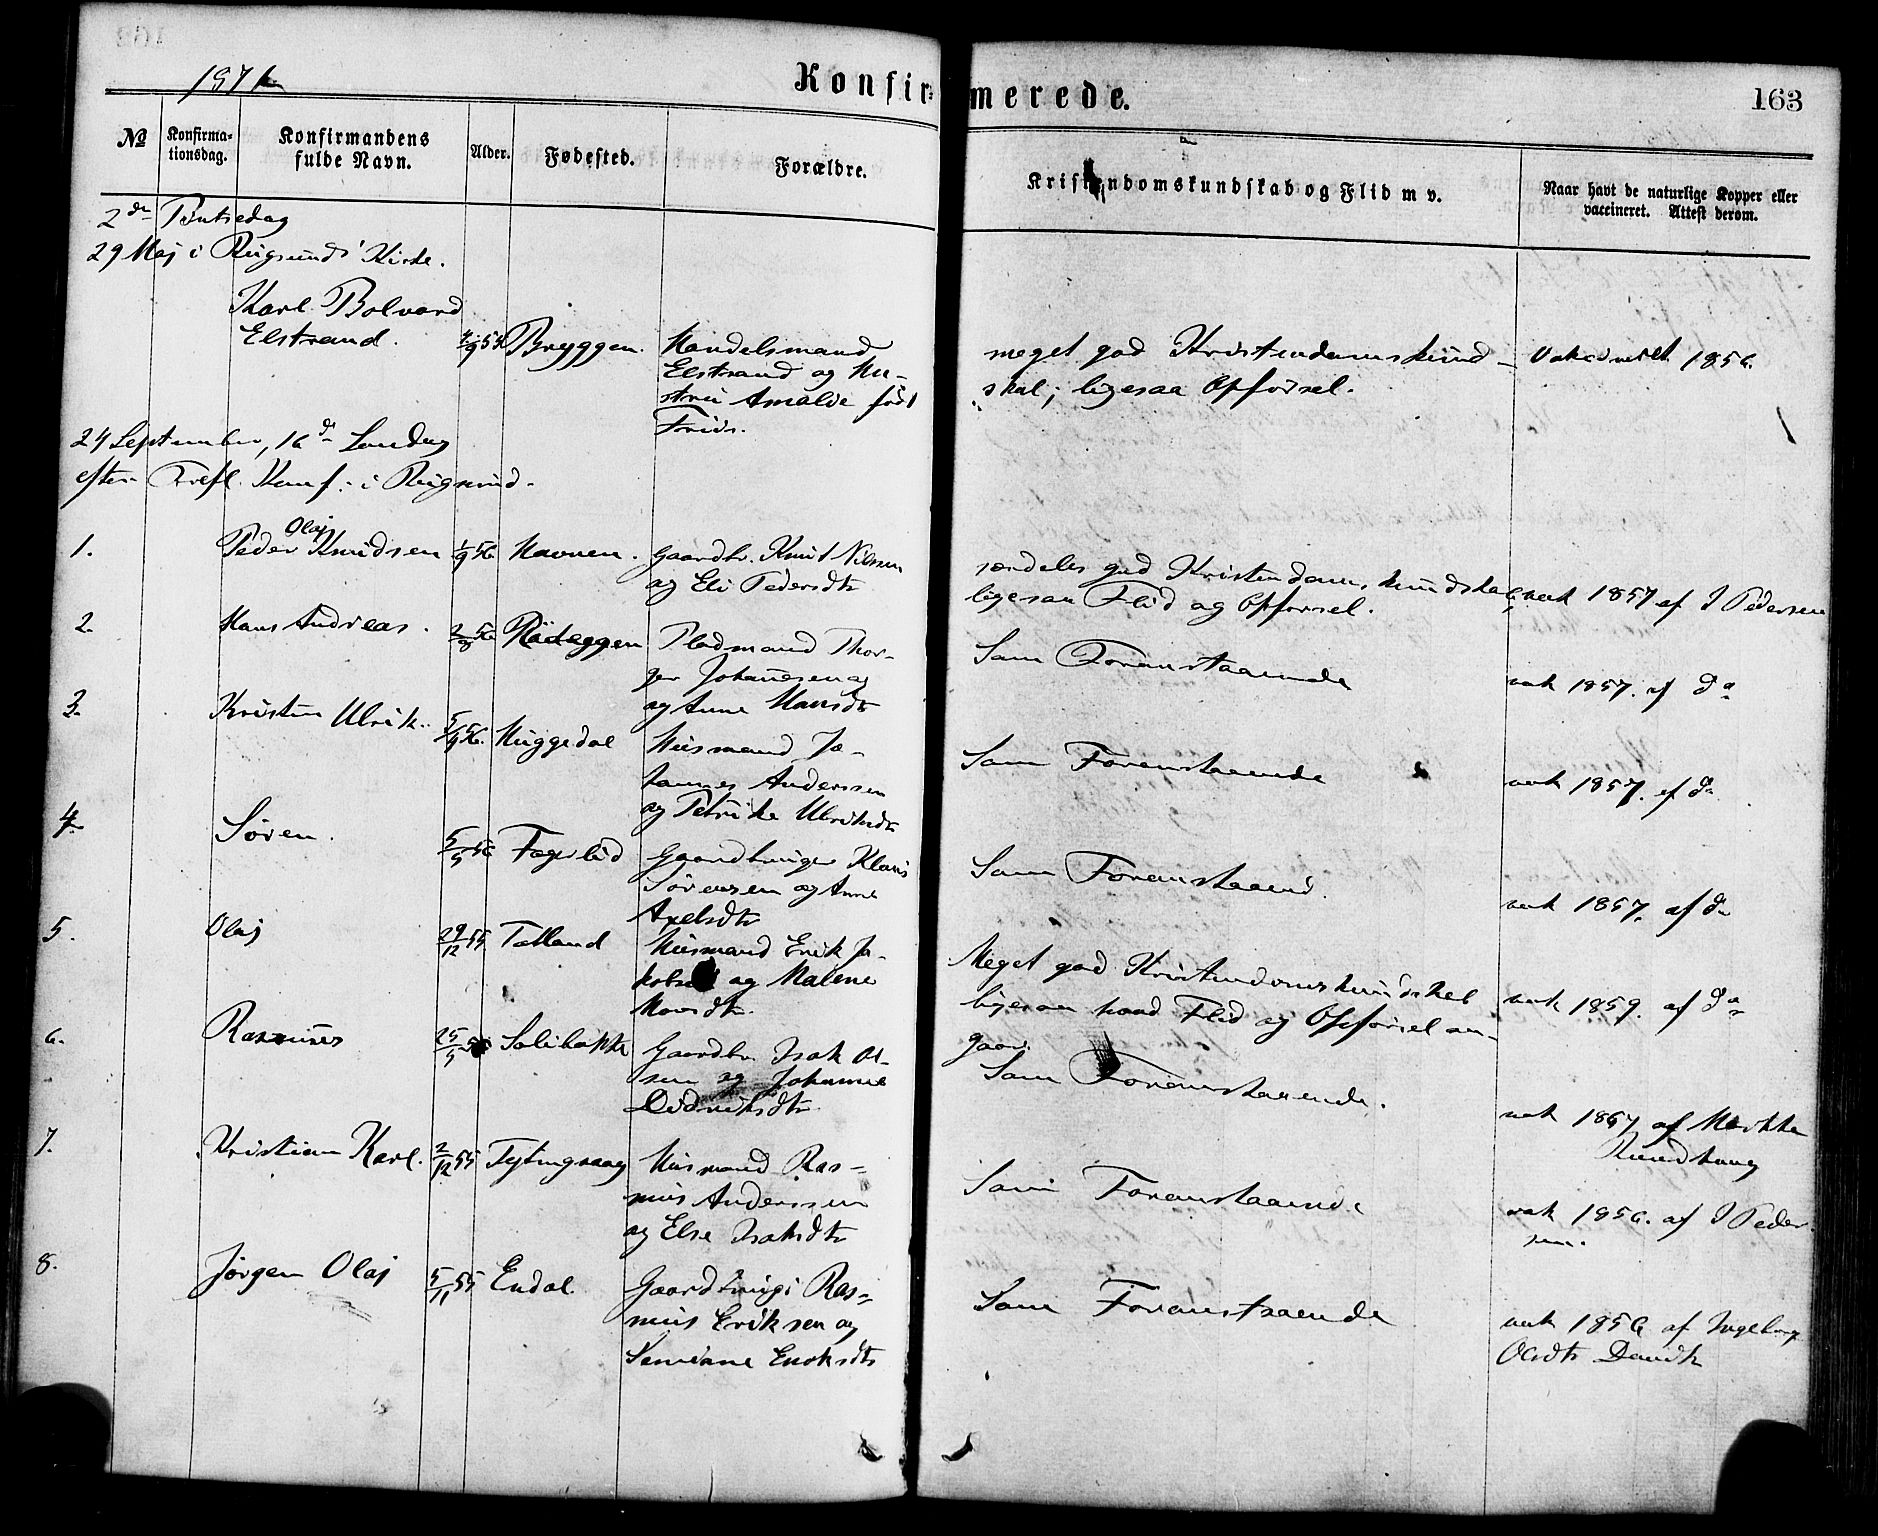 1871
Konfir=
merede.
163
№
Konfirma-
tionsdag.
Konfirmandens
fulde Navn.
Alder.
Fødested.
Forældre.
Kristendomskundskab og Flid m v.
Naar havt de naturlige Kopper eller
vaccineret. Attest derom.
2den Pintsedag
29 Maj i Rugsunds Kirke.
Karl Bolvard
Elstrand.
Bryggen.
Handelsmand
Elstrand og Hu-
stru Amalie født
Friis.
meget god Kristendomskund-
skab; ligesaa Opførsel.
Vakcineret 1856.
24 September, 16de Søndag
efter Trefl. Konf. i Rugsund.
1.
Peder Olaj Knudsen
1/9 56
Havnen.
Gaardbr. Knut Nilssen
og Eli Pedersdtr
særdeles god Kristendomskundskab,
ligesaa Flid og Opførsel.
vak 1857 af J Pedersen
2.
Hans Andreas.
2/8 56
Rødeggen
Pladsmand Thor-
ger Johannesen og
og Anne Hansdtr
Som Foranstaaende
vak 1857. af do
3.
Kristen Ulrik.
5/9 56.
Huggedal
Husmand Jo-
hannes Anderssen
og Petrike Ulriksdtr
Som Foranstaaende
vak 1857. af do
4.
Søren.
5/5 56
Fagerlid
Gaardbruger Klaus
Sørensen og Anne
Axelsdtr
Som Foranstaaend.
vak 1857. af do
5.
Olaj
29/12 55
Totland
Husmand Erik Ja-
kobsen og Malene
Monsdtr.
Meget god Kristendomskundskab
ligesaa hvad Flid og Opførsel an-
gaar.
vak 1859. af do
6.
Rasmus
25/5
Solibakke
Gaardbr. Isak Ol-
sen og Johanne
Didriksdtr.
Som Foranstaaende.
vak 1867 af Markke
Rundhaug
7.
Kristian Karl.
2/12 55
Tytingvaag
Husmand Ras-
mus Anderssen
og Else Isaksdtr
Som Foranstaaende
vak 1856. af J Peder
sen.
8.
Jørgen Olaj
5/11 55
Endal.
Gaardbruger Ras-
mus Eriksen og
Enoksdtr
Som Foranstaaende
vak 1856 af Ingeborg
Olsdtr